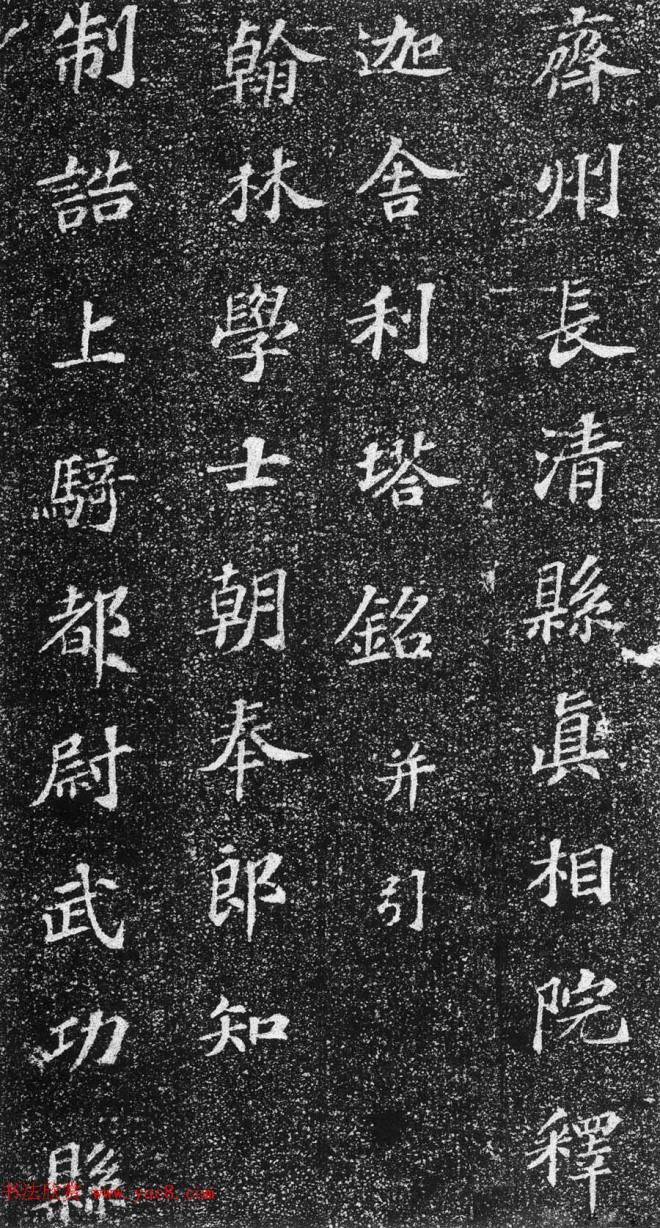 齊州長清縣真相院釋
迦舍利塔銘并引
翰林學士朝奉郎知
制誥上騎都尉武功縣
书法欣赏 www.yac8.com